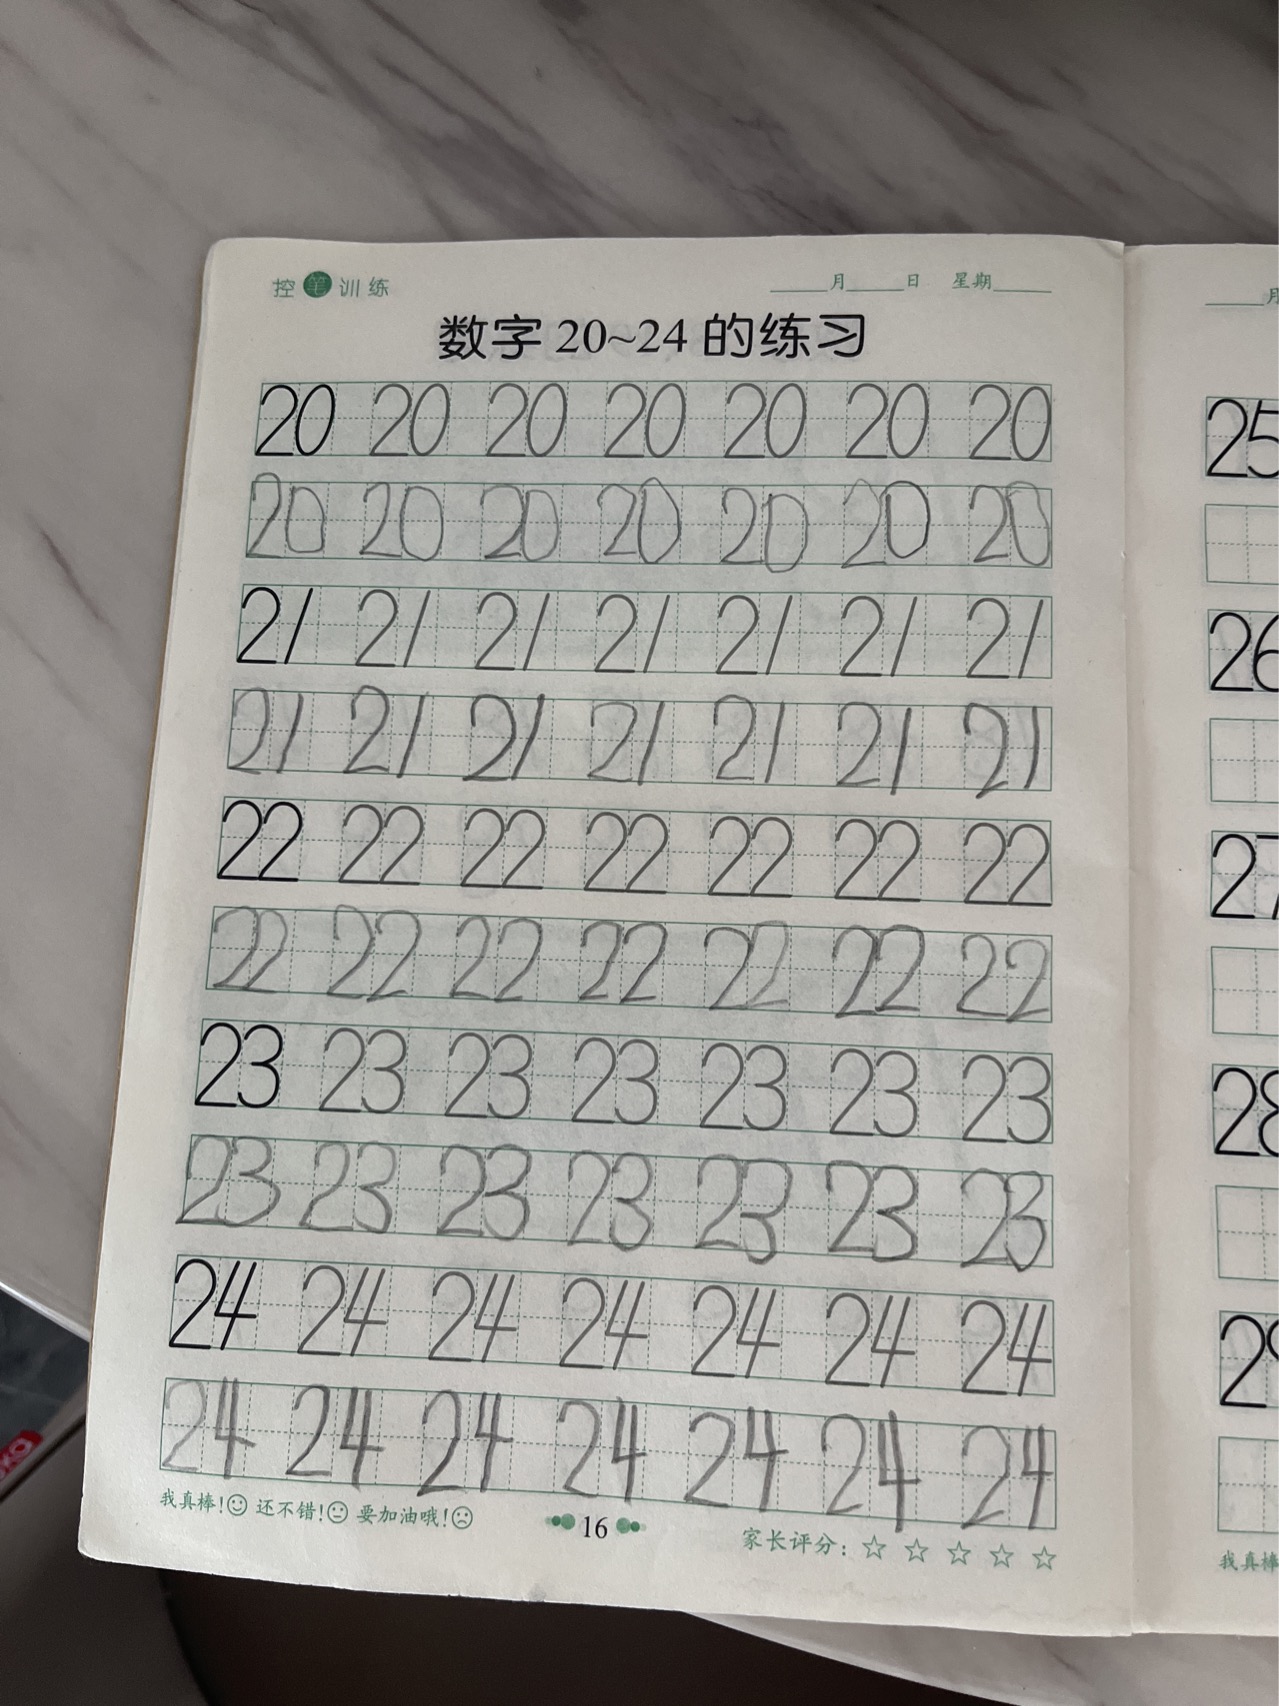 控笔训练
____月____日 星期____
数字 20~24 的练习
20 20 20 20 20 20 20
20 20 20 20 20 20 20
21 21 21 21 21 21 21
21 21 21 21 21 21 21
22 22 22 22 22 22 22
22 22 22 22 22 22 22
23 23 23 23 23 23 23
23 23 23 23 23 23 23
24 24 24 24 24 24 24
24 24 24 24 24 24 24
我真棒! 还不错! 要加油哦!
16
家长评分: ☆ ☆ ☆ ☆ ☆
____月
25
26
27
28
29
我真棒